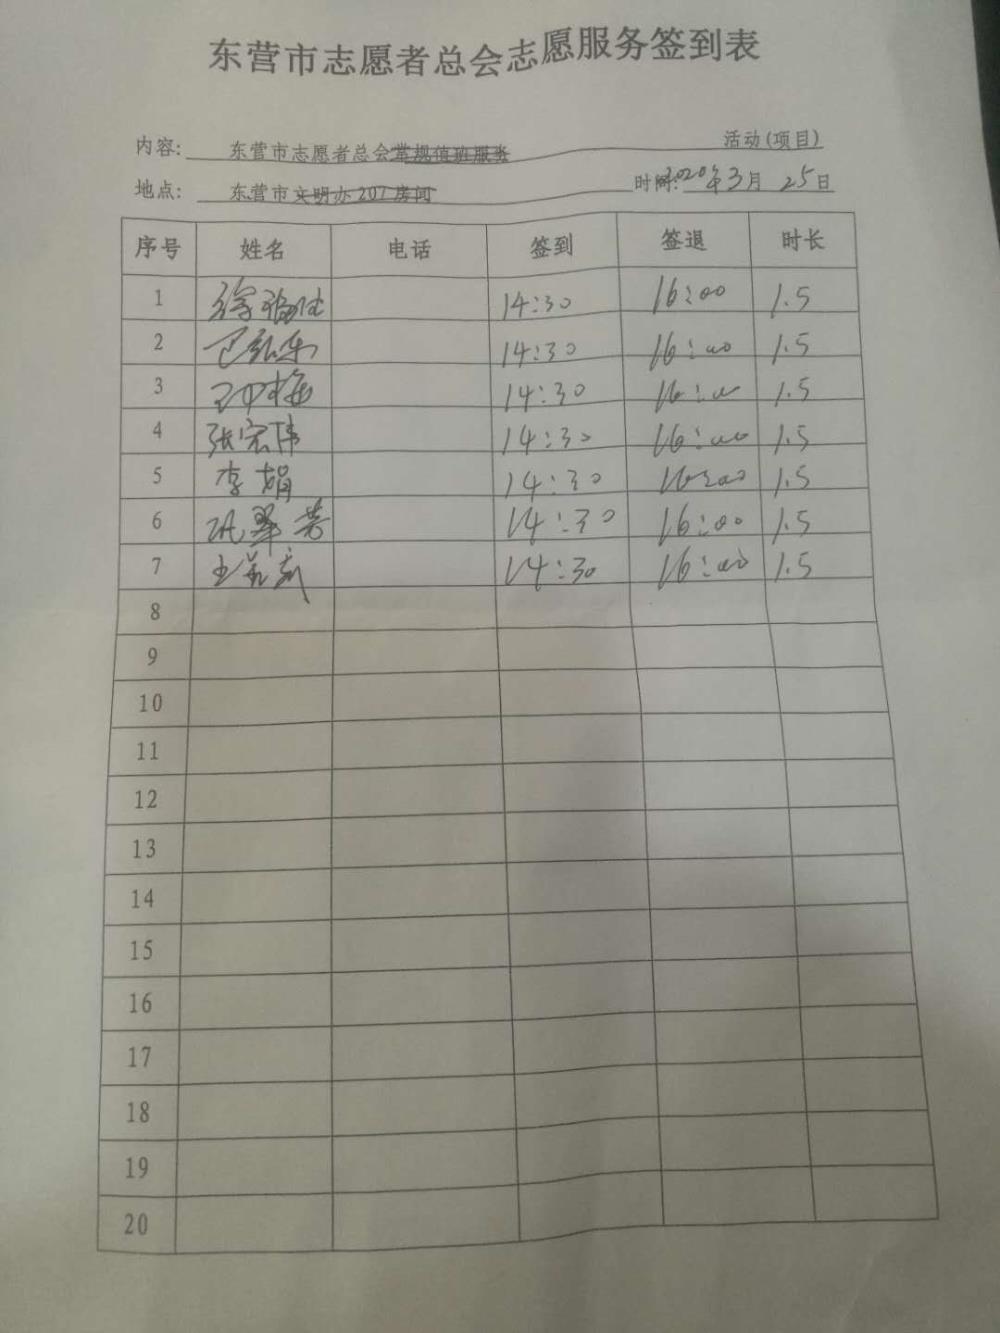 东营市志愿者总会志愿服务签到表
内容: 东营市志愿者总会常规值班服务 活动(项目)
地点: 东营市文明办207房间 时间: 2020年3月25日
序号 姓名 电话 签到 签退 时长
1 14:30 16:00 1.5
2 14:30 16:00 1.5
3 14:30 16:00 1.5
4 张宏伟 14:30 16:00 1.5
5 李娟 14:30 16:00 1.5
6 14:30 16:00 1.5
7 14:30 16:00 1.5
8
9
10
11
12
13
14
15
16
17
18
19
20